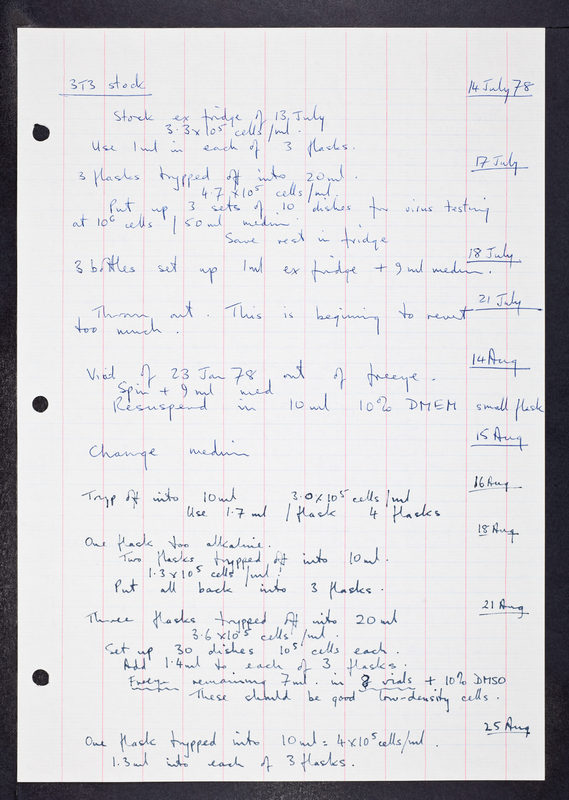 3T3 stock 14 July 78
Stock ex fridge of 13 July
3.3 x 10⁵ cells/ml.
Use 1ml in each of 3 flasks.
17 July
3 flasks trypped off into 20ml.
4.7 x 10⁵ cells/ml.
Put up 3 sets of 10 dishes for virus testing
at 10⁶ cells / 50ml medium.
Save rest in fridge
18 July
3 bottles set up 1ml ex fridge + 9ml medium.
21 July
Thrown out. This is beginning to revert
too much.
14 Aug
Vial of 23 Jan 78 out of freeze.
Spin + 9ml med
Resuspend in 10ml 10% DMEM small flask
15 Aug
Change medium
16 Aug
Tryp off into 10ml 3.0 x 10⁵ cells/ml
Use 1.7ml / flask 4 flasks
18 Aug
One flask too alkaline.
Two flasks trypped off into 10ml.
1.3 x 10⁵ cells/ml!
Put all back into 3 flasks.
21 Aug
Three flasks trypped off into 20ml
3.6 x 10⁵ cells/ml.
Set up 30 dishes 10⁵ cells each.
Add 1.4ml to each of 3 flasks.
Freeze remaining 7ml. in 8 vials + 10% DMSO
These should be good low-density cells.
25 Aug
One flask trypped into 10ml = 4x10⁵cells/ml.
1.3ml into each of 3 flasks.